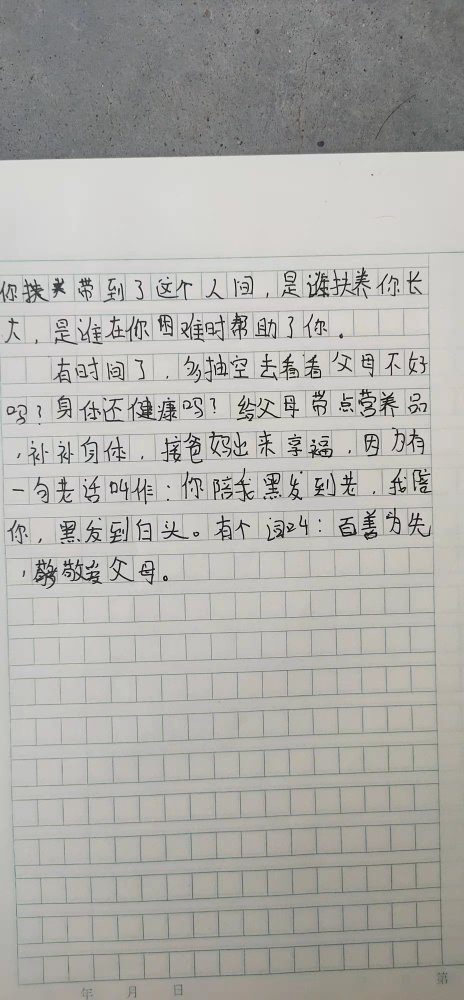 你带到了这个人间，是谁扶养你长
大，是谁在你困难时帮助了你。
有时间了，多抽空去看看父母不好
吗？身你还健康吗？给父母带点营养品
，补补身体，接爸妈出来享福，因为有
一句老话叫作：你陪我黑发到老，我陪
你，黑发到白头。有个词叫：百善为先
，敬爱父母。
年 月 日
第